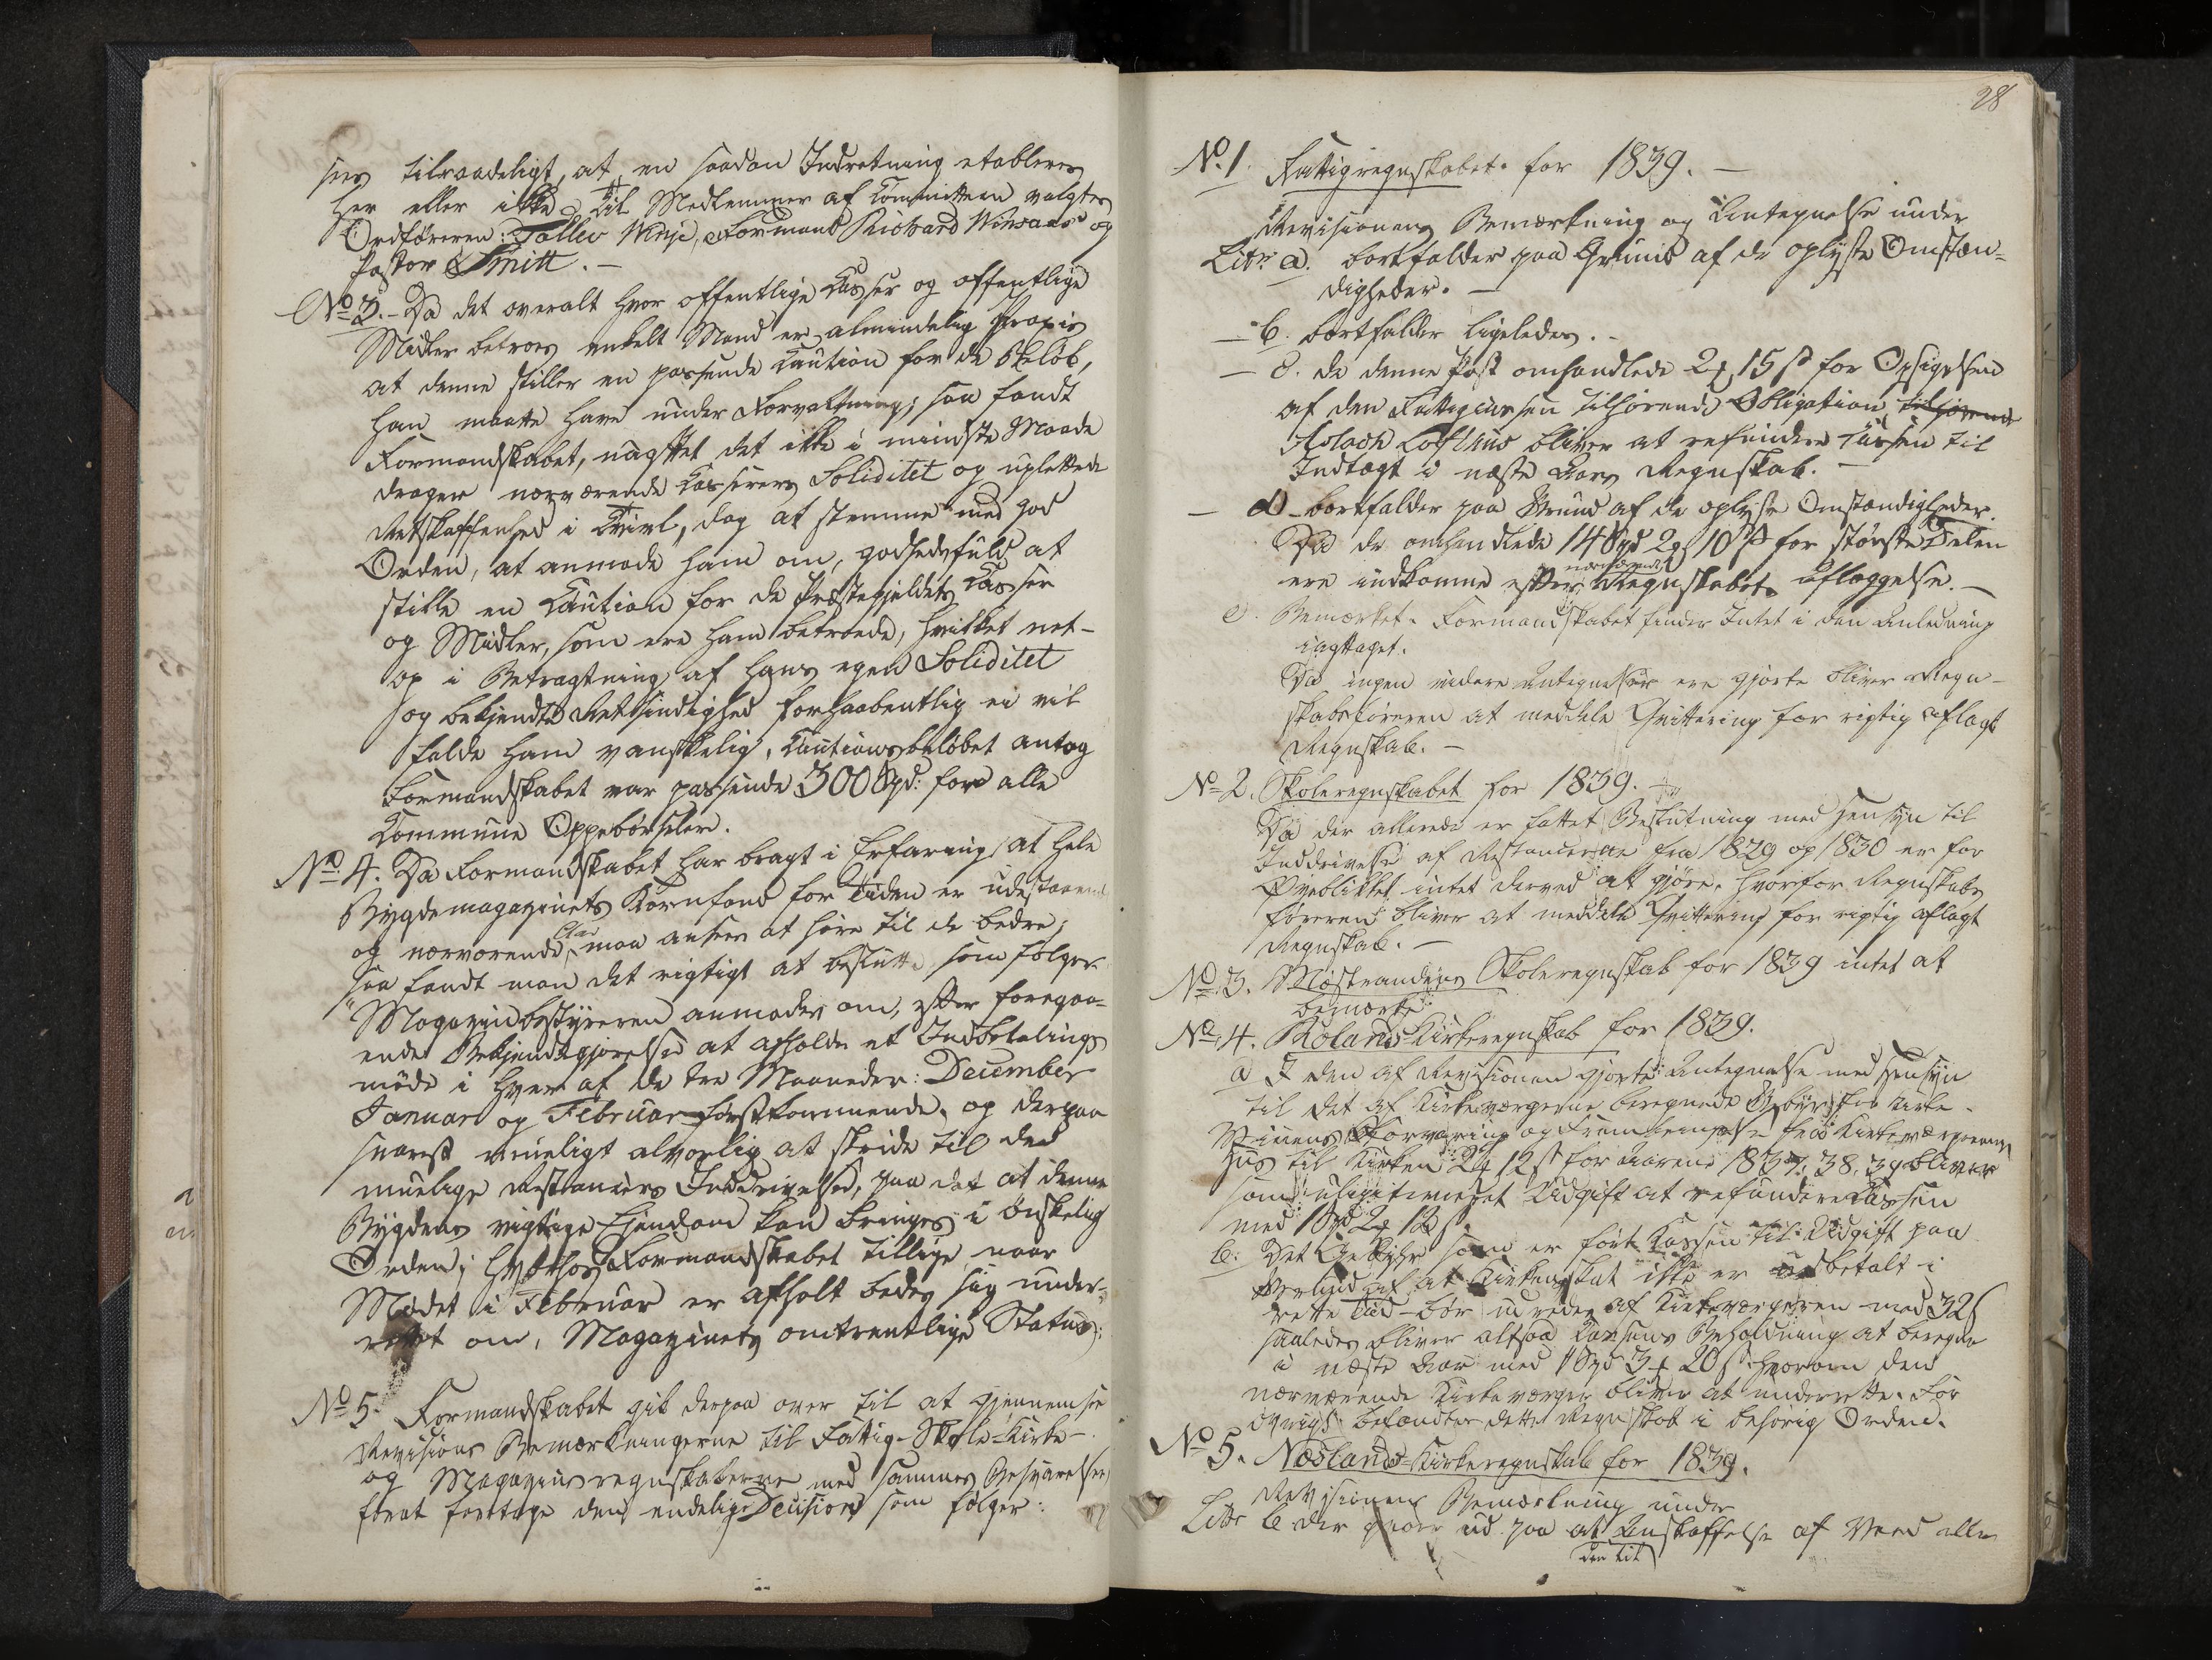 sees tilraadeligt, at en saadan Indretning etableres
her eller ikke. Til Medlemmer af Committeen valgtes
Ordføreren: Tallev Vinje, Formand Richard Winsaas og
Pastor Smitt.–
No 3.– Da det overalt hvor offentlige Casser og offentlige
Midler betroes enkelt Mand er almindelig Praxis
at denne stiller en passende Caution for de Beløb,
han maatte have under Forvaltning; saa fandt
Formandskabet, uagtet det ikke i mindste Maade
drager nærværende Casserers Soliditet og uplettede
Retskaffenhed i Tvivl, dog at stemme med god
Orden, at anmode ham om, godhedsfuld at
stille en Caution for de Præstegjeldets Casser
og Midler, som ere ham betroede, hvilket net-
op i Betragtning af hans egen Soliditet
og bekjendte Retsindighed forhaabentlig ei vil
falde ham vanskelig. Cautionsbeløbet antog
Formandskabet var passende 300 Spd: for alle
Commune Oppebørseler.
No 4. Da Formandskabet har bragt i Erfaring, at hele
Bygdemagazinets Kornfond for Tiden er udestaaende
og nærværende Aar maa ansees at høre til de bedre;
saa fandt man det rigtigt at beslutte som følger
"Magazinbestyreren anmodes om, efter foregaa-
ende Bekjendtgjørelse at afholde et Indbetalings
møde i hver af de tre Maaneder: December
Januar og Februar førstkommende, og derpaa
snarest mueligt alvorlig at skride til den
muelige Restancers Inddrivelse, paa det at denne
Bygdens vigtige Ejendom kan bringes i ønskelig
Orden; hvorhos Formandskabet tillige naar
Mødet i Februar er afholt bedes sig under-
rettet om, Magazinets omtrentlige Status;
No 5. Formandskabet gik derpaa over til at gjennemsee
Revisions Bemærkningerne til Fattig- Skole- Kirke-
og Magazinsregnskaberne med sammes Besvarelser,
forat foretage den endelige Decision som følger:
28
No 1. Fattigregnskabet for 1839.–
Revisionens Bemærkning og Antegnelse under
Litr a. bortfalder paa Grund af de oplyste Omstæn-
digheder.–
– b. bortfalder ligeledes.–
– c. de denne Post omhandlede 2 15 s for Opsigelsen
af den Fattigcassen tilhørende Obligation tilhørende
bliver at refundere Cassen til
Indtægt i næste Aars Regnskab.–
– d bortfalder paa Grund af de oplyste Omstændigheder.
Da de omhandlede 14 Spd 2 10 s for største Delen
ere indkomne efter nærværende Regnskabets Aflæggelse.–
e. Bemærket. Formandskabet finder Intet i den Anledning
iagttaget.
Da ingen videre Antegnelser ere gjorte bliver Regn-
skabsføreren at meddele Qvittering for rigtig aflagt
Regnskab.–
No 2. Skoleregnskabet for 1839.
Da der allerede er fattet Beslutning med Hensyn til
Inddrivelse af Restancerne fra 1829 og 1830 er for
Øieblikket intet derved at gjøre, hvorfor Regnskabs
føreren bliver at meddele Qvittering for rigtig aflagt
Regnskab.–
No 3. Møstrandens Skoleregnskab for 1839 intet at
bemærke
No 4. Rolands Kirkeregnskab for 1839.
a I den af Revisionen gjorte Antegnelse med Hensyn
til det af Kirkeværgerne beregnede Gebyr for Kirke-
Vinens Forvaring og fra Kirkeværgernes
Huus til Kirken 2 12 s for Aarene 1837, 38, 39 bliver
som ulegitimeret Udgift at refundere Cassen
med 1 Spd 2 12 s.
b: Det Gebyhr som er ført Kassen til Udgift paa
Grund af at Kirkeskat ikke er udbetalt i
rette Tid – bør udredes af Kirkeværgeren med 32 s
saaledes bliver altsaa Cassens Beholdning at beregne
i næste Aar med 1 Spd 3 20 s hvorom den
nærværende Kirkeværger bliver at underrette. For
øvrigt befandtes dette Regnskab i behørig Orden.
No 5. Næslands Kirkeregnskab for 1839.
Revisionens Bemærkning under
Litr b der gaaer ud paa at Anskaffelse af Veed alle
den til